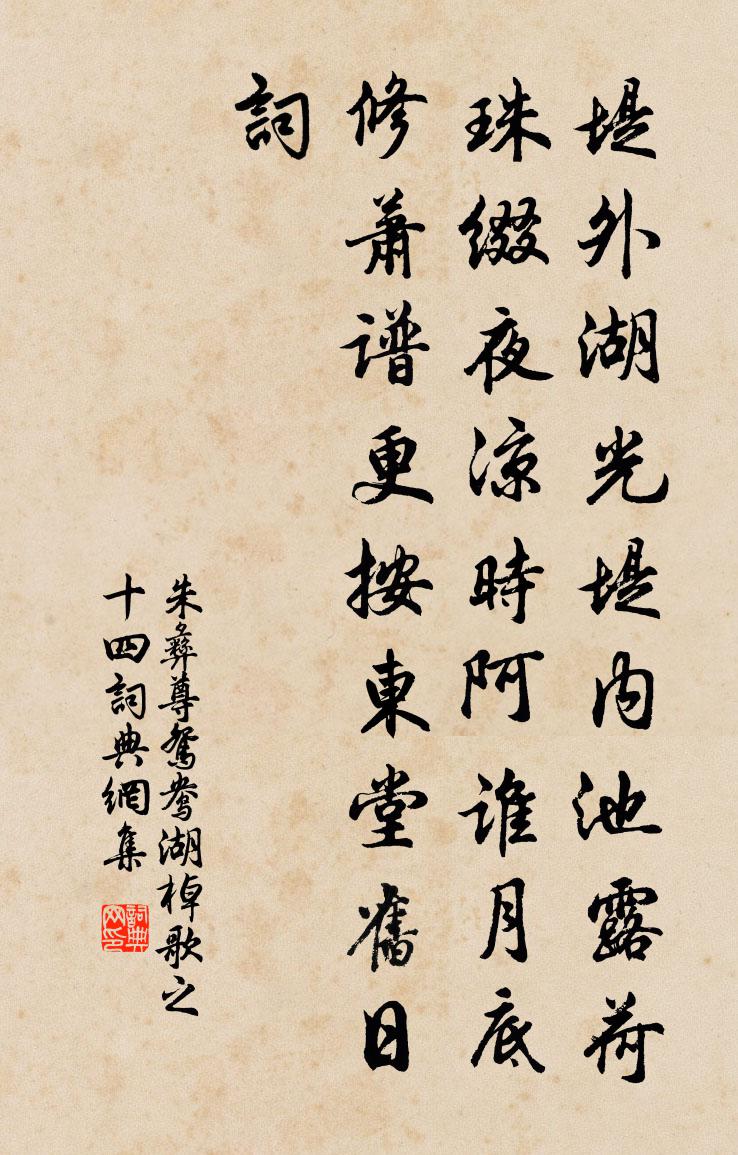 堤外湖光堤内池露荷
珠綴夜涼時阿誰月底
修蕭譜更按東堂舊日
詞
朱彝尊鴛鴦湖棹歌之
十四詞典網集
詞典网印